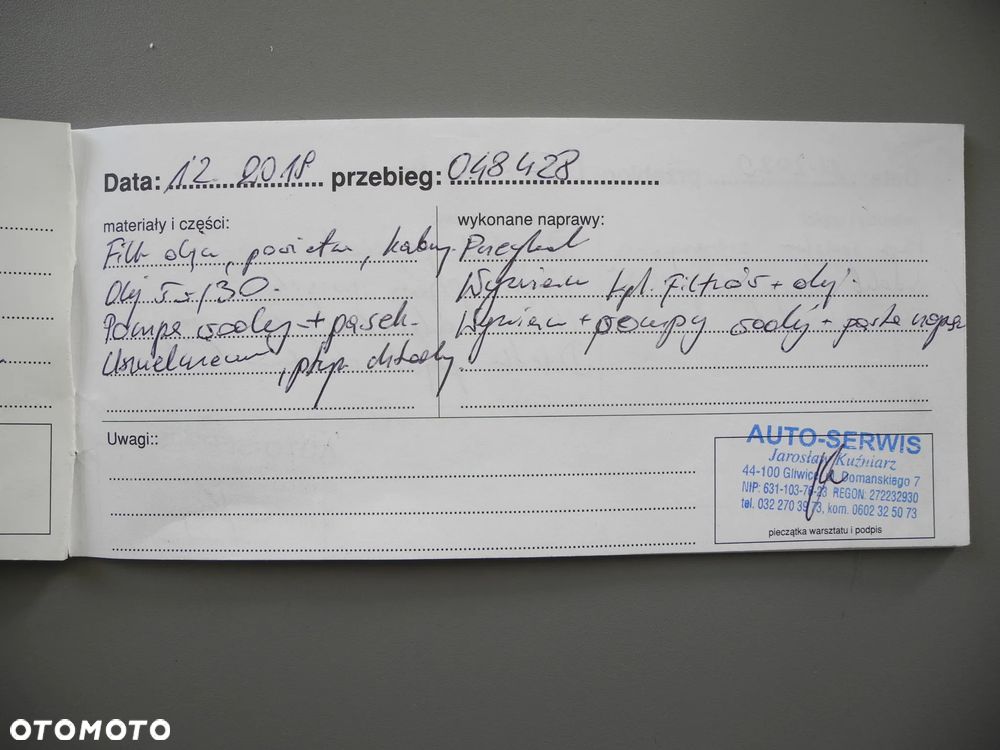 Data: 12 2018 przebieg: 048428
materiały i części:
Filtr oleju, powietrza, kabiny
Olej 5W/30
Pompa wody + pasek
Uszczelniacz, płyn chłodn.
wykonane naprawy:
Przegląd
Wymiana kpl. filtrów + olej
Wymiana + pompy wody +
Uwagi::
AUTO-SERWIS
Jarosław Kuźniarz
44-100 Gliwice Domańskiego 7
NIP: 631-103-76-23 REGON: 272232930
tel. 032 270 39 73, kom. 0602 32 50 73
pieczątka warsztatu i podpis
OTOMOTO